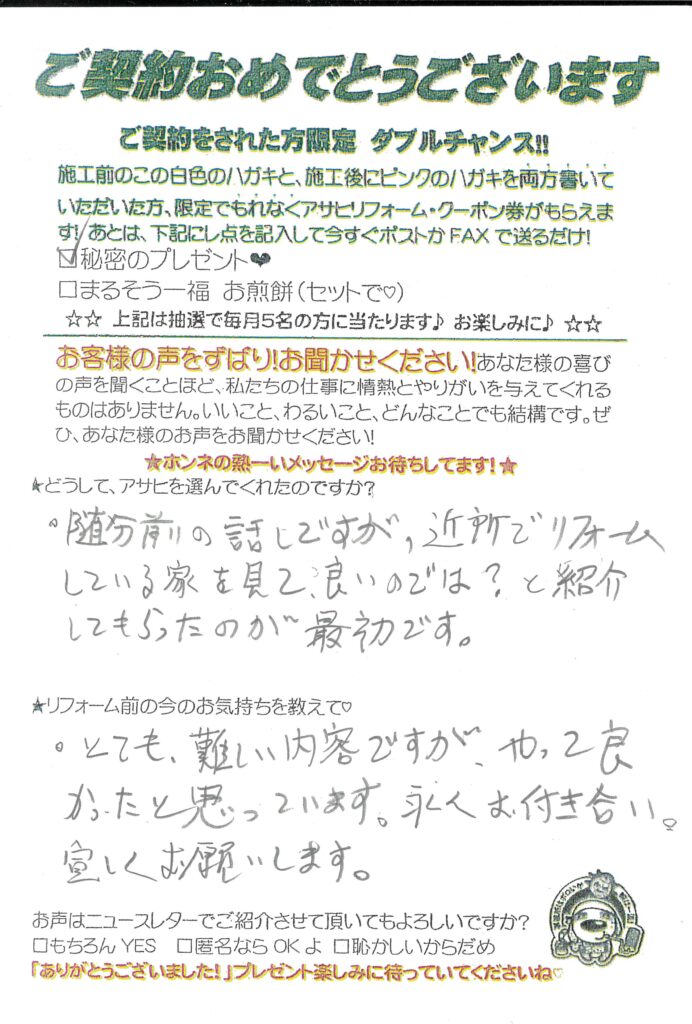 ご契約おめでとうございます
ご契約をされた方限定 ダブルチャンス!!
施工前のこの白色のハガキと、施工後にピンクのハガキを両方書いて
いただいた方、限定でもれなくアサヒリフォーム・クーポン券がもらえま
す! あとは、下記にレ点を記入して今すぐポストかFAXで送るだけ!
☑秘密のプレゼント♥
□まるそう一福 お煎餅(セットで♡)
☆☆ 上記は抽選で毎月5名の方に当たります♪ お楽しみに♪ ☆☆
お客様の声をずばり!お聞かせください!あなた様の喜び
の声を聞くことほど、私たちの仕事に情熱とやりがいを与えてくれる
ものはありません。いいこと、わるいこと、どんなことでも結構です。ぜ
ひ、あなた様のお声をお聞かせください!
★ホンネの熱ーいメッセージお待ちしてます!★
★どうして、アサヒを選んでくれたのですか?
。随分前の話しですが、近所でリフォーム
している家を見て、良いのでは?と紹介
してもらったのが最初です。
★リフォーム前の今のお気持ちを教えて♡
。とても、難しい内容ですが、やって良
かったと思っています。永くお付き合い。
宜しくお願いします。
お声はニュースレターでご紹介させて頂いてもよろしいですか?
□もちろんYES □匿名ならOKよ □恥かしいからだめ
「ありがとうございました!」プレゼント楽しみに待っていてくださいね♡